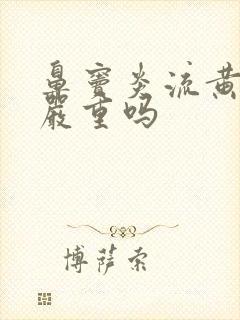 鼻窦炎流黄
严重吗
博萨索